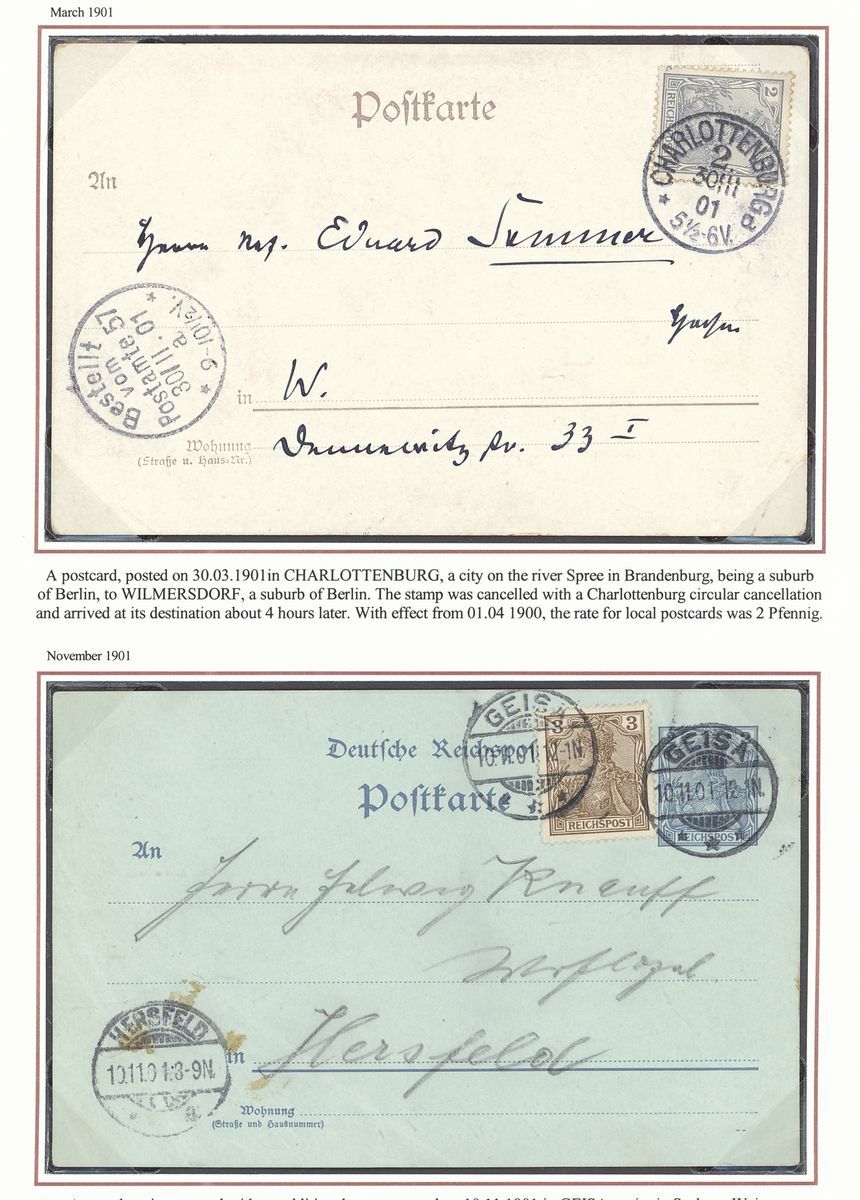 March 1901
Postkarte
REICHSPOST
2
CHARLOTTENBURG a
2
30 III
01
5½-6V.
An
Herrn Ref. Eduard Sommer
Bestellt
vom
Postamte 57
30/ II. 01
a
9-10½V.
in W.
Wohnung
(Straße u. Haus=Nr.)
Dennewitz str. 33 I
A postcard, posted on 30.03.1901in CHARLOTTENBURG, a city on the river Spree in Brandenburg, being a suburb
of Berlin, to WILMERSDORF, a suburb of Berlin. The stamp was cancelled with a Charlottenburg circular cancellation
and arrived at its destination about 4 hours later. With effect from 01.04 1900, the rate for local postcards was 2 Pfennig.
November 1901
Deutsche Reichspost
Postkarte
GEISA
10.11.01 12-1N.
3 3
REICHSPOST
GEISA
10.11.01. 12-1N.
REICHSPOST
An
Herrn Helwig Knauff
HERSFELD
10.11.01.8-9N.
in Hersfeld
Wohnung
(Straße und Hausnummer)